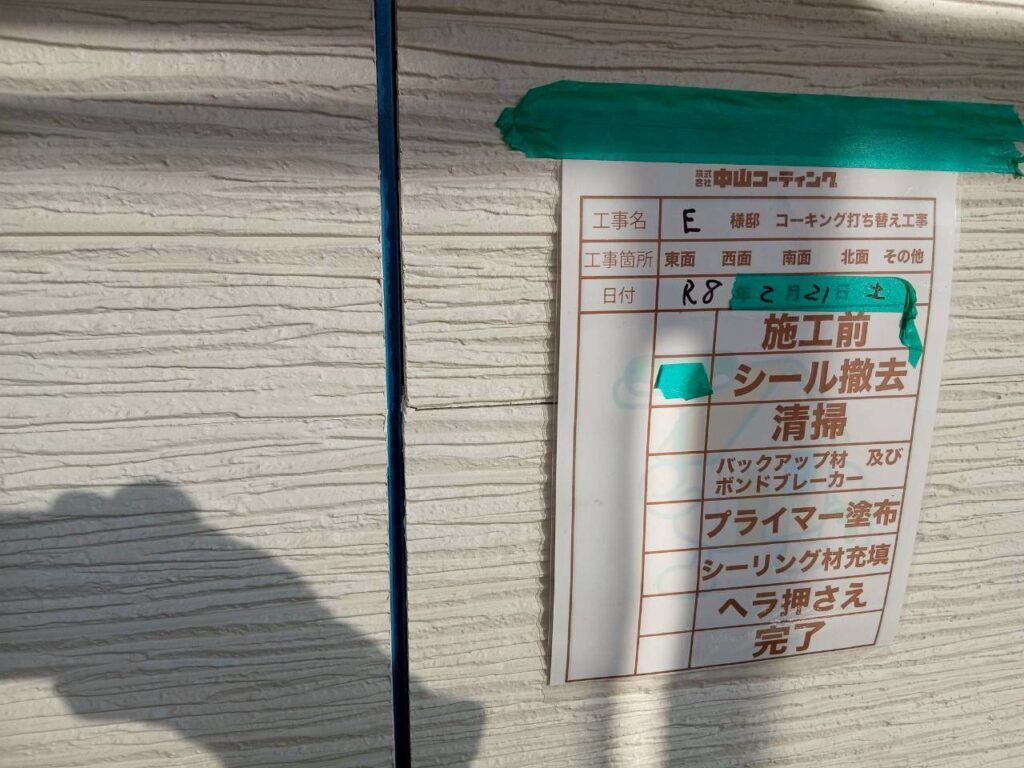 株式会社 中山コーティング
工事名 E 様邸 コーキング打ち替え工事
工事箇所 東面 西面 南面 北面 その他
日付 R8 年 2 月 21 日 土
施工前
シール撤去
清掃
バックアップ材 及び
ボンドブレーカー
プライマー塗布
シーリング材充填
ヘラ押さえ
完了